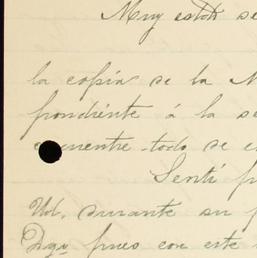 Muy estdo se
la copia de la N
pondiente á la se
cuentre todo se e
Sentí
Ud. durante su
pues con este